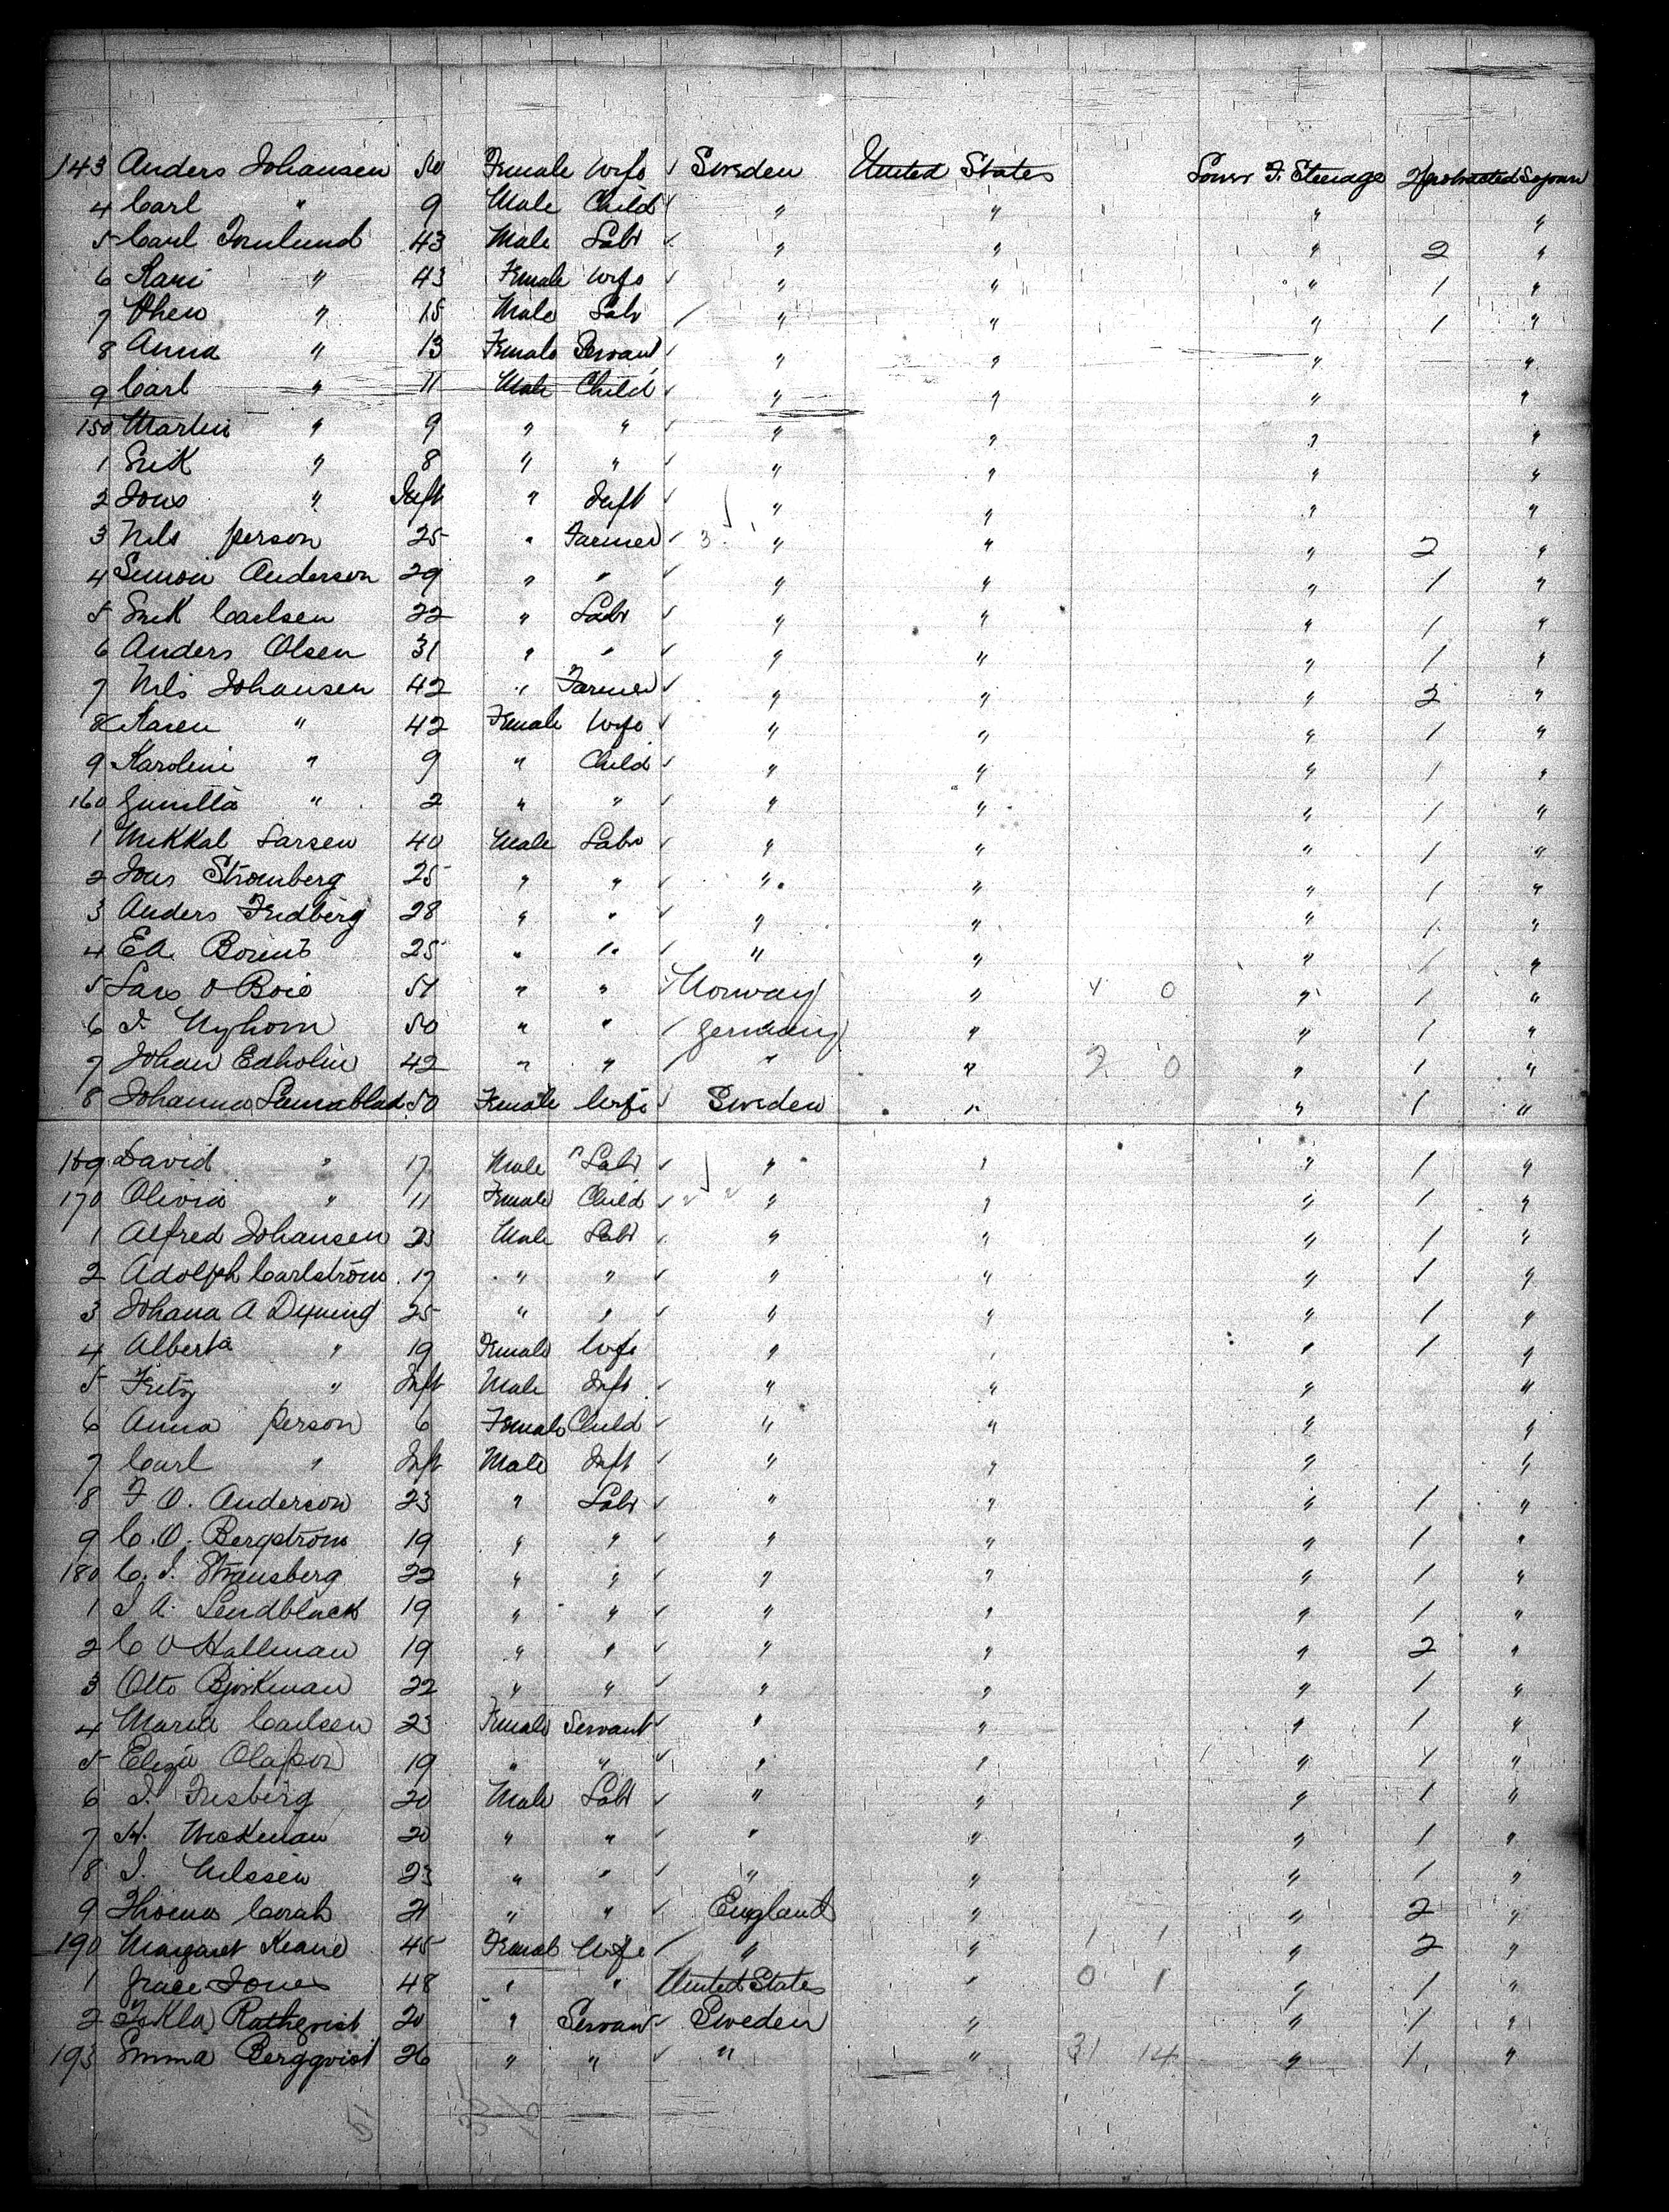 143 Anders Johansen 50 Female Wife ✓ Sweden United States Lower F. Steerage 2 protracted Sojourn
4 Carl " 9 Male Child " " " "
5 Carl 43 Male Labr ✓ " " " 2 "
6 Kari " 43 Female Wife ✓ " " " 1 "
7 " 15 Male Labr ✓ " " " 1 "
8 Anna " 13 Female Servant ✓ " " " "
9 Carl " 11 Male Child ✓ " " " "
150 Martin " 9 " " ✓ " " " "
1 Erik " 8 " " ✓ " " " "
2 Jons " Inft " Inft ✓ " " " "
3 Nils Person 25 " Farmer ✓ 3 " " " 2 "
4 Simon Anderson 29 " " ✓ " " " 1 "
5 Erik Carlsen 22 " Labr ✓ " " " 1 "
6 Anders Olsen 31 " " ✓ " " " 1 "
7 Nils Johansen 42 " Farmer ✓ " " " 2 "
8 Karen " 42 Female Wife ✓ " " " 1 "
9 Karolini " 9 " Child ✓ " " " 1 "
160 Gunilla " 2 " " ✓ " " " 1 "
1 Mikkal Larsen 40 Male Labr ✓ " " " 1 "
2 Jons Stromberg 25 " " ✓ " " " 1 "
3 Anders Fridberg 28 " " ✓ " " " 1 "
4 Ed. 25 " " ✓ " " " 1 "
5 Lars O Boie 51 " " ✓ Norway " 4 0 " 1 "
6 J. Nyhorn 50 " " ✓ Germany " " 1 "
7 Johan Edholm 42 " " ✓ " " 2 0 " 1 "
8 Johanna 50 Female Wife ✓ Sweden " " 1 "
169 David " 17 Male Labr ✓ " " " 1 "
170 Olivia " 11 Female Child ✓ " " " 1 "
1 Alfred Johansen 23 Male Labr ✓ " " " 1 "
2 Adolph Carlström 17 " " ✓ " " " 1 "
3 Johana A 25 " " ✓ " " " 1 "
4 Alberta " 19 Female Wife " " " 1 "
5 Fritz " Inft Male Inft ✓ " " " "
6 Anna Person 6 Female Child ✓ " " " "
7 Carl " Inft Male Inft ✓ " " " "
8 F. O. Anderson 23 " Labr ✓ " " " 1 "
9 C. O. Bergström 19 " " ✓ " " " 1 "
180 C. J. Stransberg 22 " " ✓ " " " 1 "
1 J. A. Lendblack 19 " " ✓ " " " 1 "
2 C O Hallman 19 " " ✓ " " " 2 "
3 Otto Bjorkman 22 " " ✓ " " " 1 "
4 Maria Carlsen 23 Female Servant ✓ " " " 1 "
5 Eliza Olafson 19 " " ✓ " " " 1 "
6 J. Fresberg 20 Male Labr ✓ " " " 1 "
7 H. Wickman 20 " " ✓ " " " 1 "
8 J. Nilssen 23 " " ✓ " " " 1 "
9 Thomas Corah 21 " " ✓ England " " 2 "
190 Margaret Keane 45 Female Wife ✓ " " 1 1 " 2 "
1 Grace Jones 48 " " United States " 0 1 " 1 "
2 Tekla Rathqvist 20 " Servant ✓ Sweden " " 1 "
193 Emma Bergqvist 26 " " ✓ " " 31 14 " 1 "